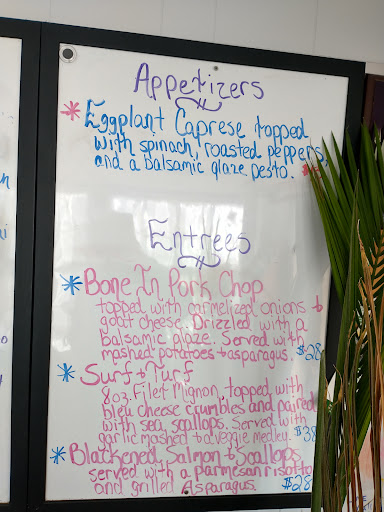 Appetizers
* Eggplant Caprese topped
with spinach, roasted peppers,
and a balsamic glaze pesto.
Entrees
* Bone In Pork Chop
topped with carmelized onions +
goat cheese. Drizzled with a
balsamic glaze. Served with
mashed potatoes + asparagus. $28
* Surf + Turf
8oz. Filet Mignon, topped with
bleu cheese crumbles and paired
with sea scallops. Served with
garlic mashed + a veggie medley. $38
* Blackened Salmon + Scallops
served with a parmesan risotto
and grilled Asparagus $28